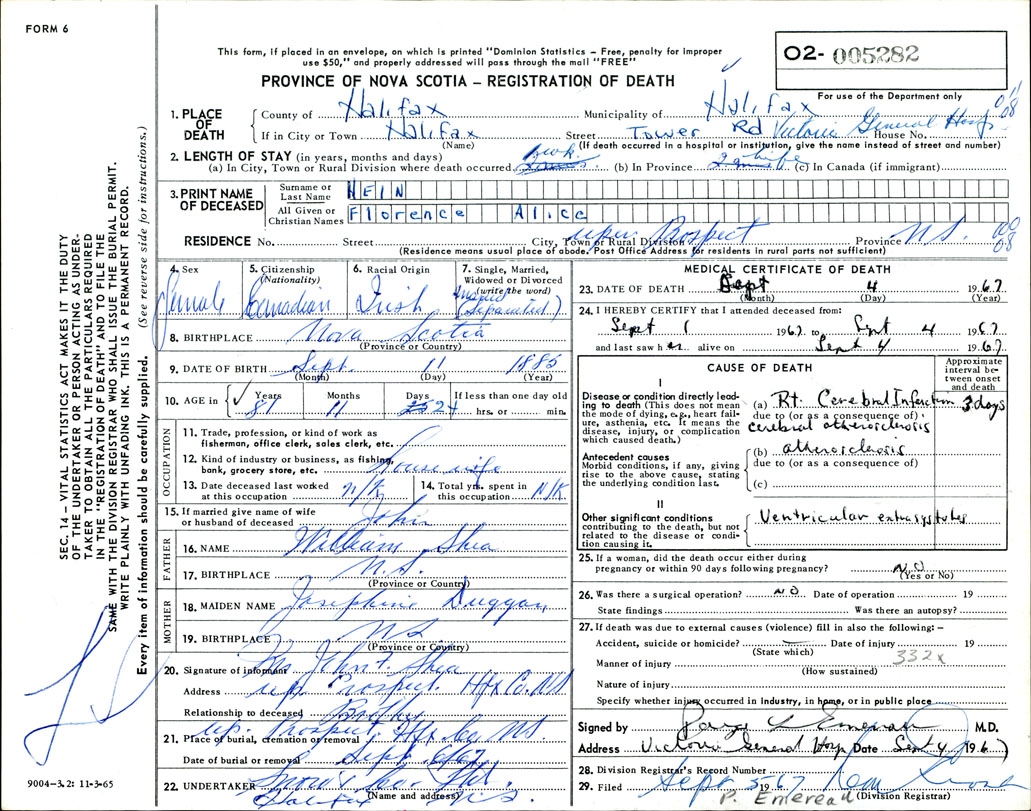 FORM 6
This form, if placed in an envelope, on which is printed "Dominion Statistics – Free, penalty for improper
use $50," and properly addressed will pass through the mail "FREE"
O2- 005282
PROVINCE OF NOVA SCOTIA – REGISTRATION OF DEATH
For use of the Department only
1. PLACE OF DEATH
County of Halifax Municipality of Halifax
If in City or Town Halifax Street Tower Rd Victoria General Hosp House No.
(Name) (If death occurred in a hospital or institution, give the name instead of street and number)
2. LENGTH OF STAY (in years, months and days)
(a) In City, Town or Rural Division where death occurred (b) In Province life (c) In Canada (if immigrant)
3. PRINT NAME OF DECEASED
Surname or Last Name HEIN
All Given or Christian Names Florence Alice
RESIDENCE No. Street City, Town or Rural Division Prospect Province N.S.
(Residence means usual place of abode. Post Office Address for residents in rural parts not sufficient)
08
08
4. Sex Female
5. Citizenship (Nationality) Canadian
6. Racial Origin Irish
7. Single, Married, Widowed or Divorced (write the word) (Separated)
8. BIRTHPLACE Nova Scotia
(Province or Country)
9. DATE OF BIRTH Sept. 11 1885
(Month) (Day) (Year)
10. AGE in Years 81 Months 11 Days 24 If less than one day old hrs. or min.
OCCUPATION
11. Trade, profession, or kind of work as fisherman, office clerk, sales clerk, etc.
12. Kind of industry or business, as fishing, bank, grocery store, etc. House wife
13. Date deceased last worked at this occupation N/K
14. Total yrs. spent in this occupation N/K
15. If married give name of wife or husband of deceased John
FATHER
16. NAME William Shea
17. BIRTHPLACE N.S.
(Province or Country)
MOTHER
18. MAIDEN NAME Josephine Duggan
19. BIRTHPLACE N.S.
(Province or Country)
20. Signature of informant John F. Shea
Address Prospect. Hfx Co. N.S.
Relationship to deceased Brother
21. Place of burial, cremation or removal up. Prospect Hfx. Co. N.S.
Date of burial or removal Sept.
22. UNDERTAKER Snow's Ltd.
(Name and address) Halifax N.S.
MEDICAL CERTIFICATE OF DEATH
23. DATE OF DEATH Sept 4 1967
(Month) (Day) (Year)
24. I HEREBY CERTIFY that I attended deceased from:
Sept 1 1967 to Sept 4 1967
and last saw her alive on Sept 4 1967
CAUSE OF DEATH
Approximate interval between onset and death
I
Disease or condition directly leading to death (This does not mean the mode of dying, e.g., heart failure, asthenia, etc. It means the disease, injury, or complication which caused death.)
(a) Rt. Cerebral Infarction 3 days
due to (or as a consequence of)
cerebral atherosclerosis
Antecedent causes
Morbid conditions, if any, giving rise to the above cause, stating the underlying condition last.
(b) atherosclerosis
due to (or as a consequence of)
(c)
II
Other significant conditions contributing to the death, but not related to the disease or condition causing it.
Ventricular extrasystoles
25. If a woman, did the death occur either during
pregnancy or within 90 days following pregnancy? NO
(Yes or No)
26. Was there a surgical operation? NO Date of operation 19
State findings Was there an autopsy?
27. If death was due to external causes (violence) fill in also the following: –
Accident, suicide or homicide? Date of injury 19
(State which)
332x
Manner of injury
(How sustained)
Nature of injury
Specify whether injury occurred in Industry, in home, or in public place
Signed by M.D.
Address Victoria General Hosp Date Sept 4 1967
28. Division Registrar's Record Number
29. Filed Sept 5 1967
(Division Registrar)
SEC. 14 – VITAL STATISTICS ACT MAKES IT THE DUTY
OF THE UNDERTAKER OR PERSON ACTING AS UNDER-
TAKER TO OBTAIN ALL THE PARTICULARS REQUIRED
IN THE "REGISTRATION OF DEATH" AND TO FILE THE
SAME WITH THE DIVISION REGISTRAR WHO SHALL ISSUE THE BURIAL PERMIT.
WRITE PLAINLY WITH UNFADING INK. THIS IS PERMANENT RECORD.
Every item of information should be carefully supplied. (See reverse side for instructions.)
9004-3.2: 11-3-65